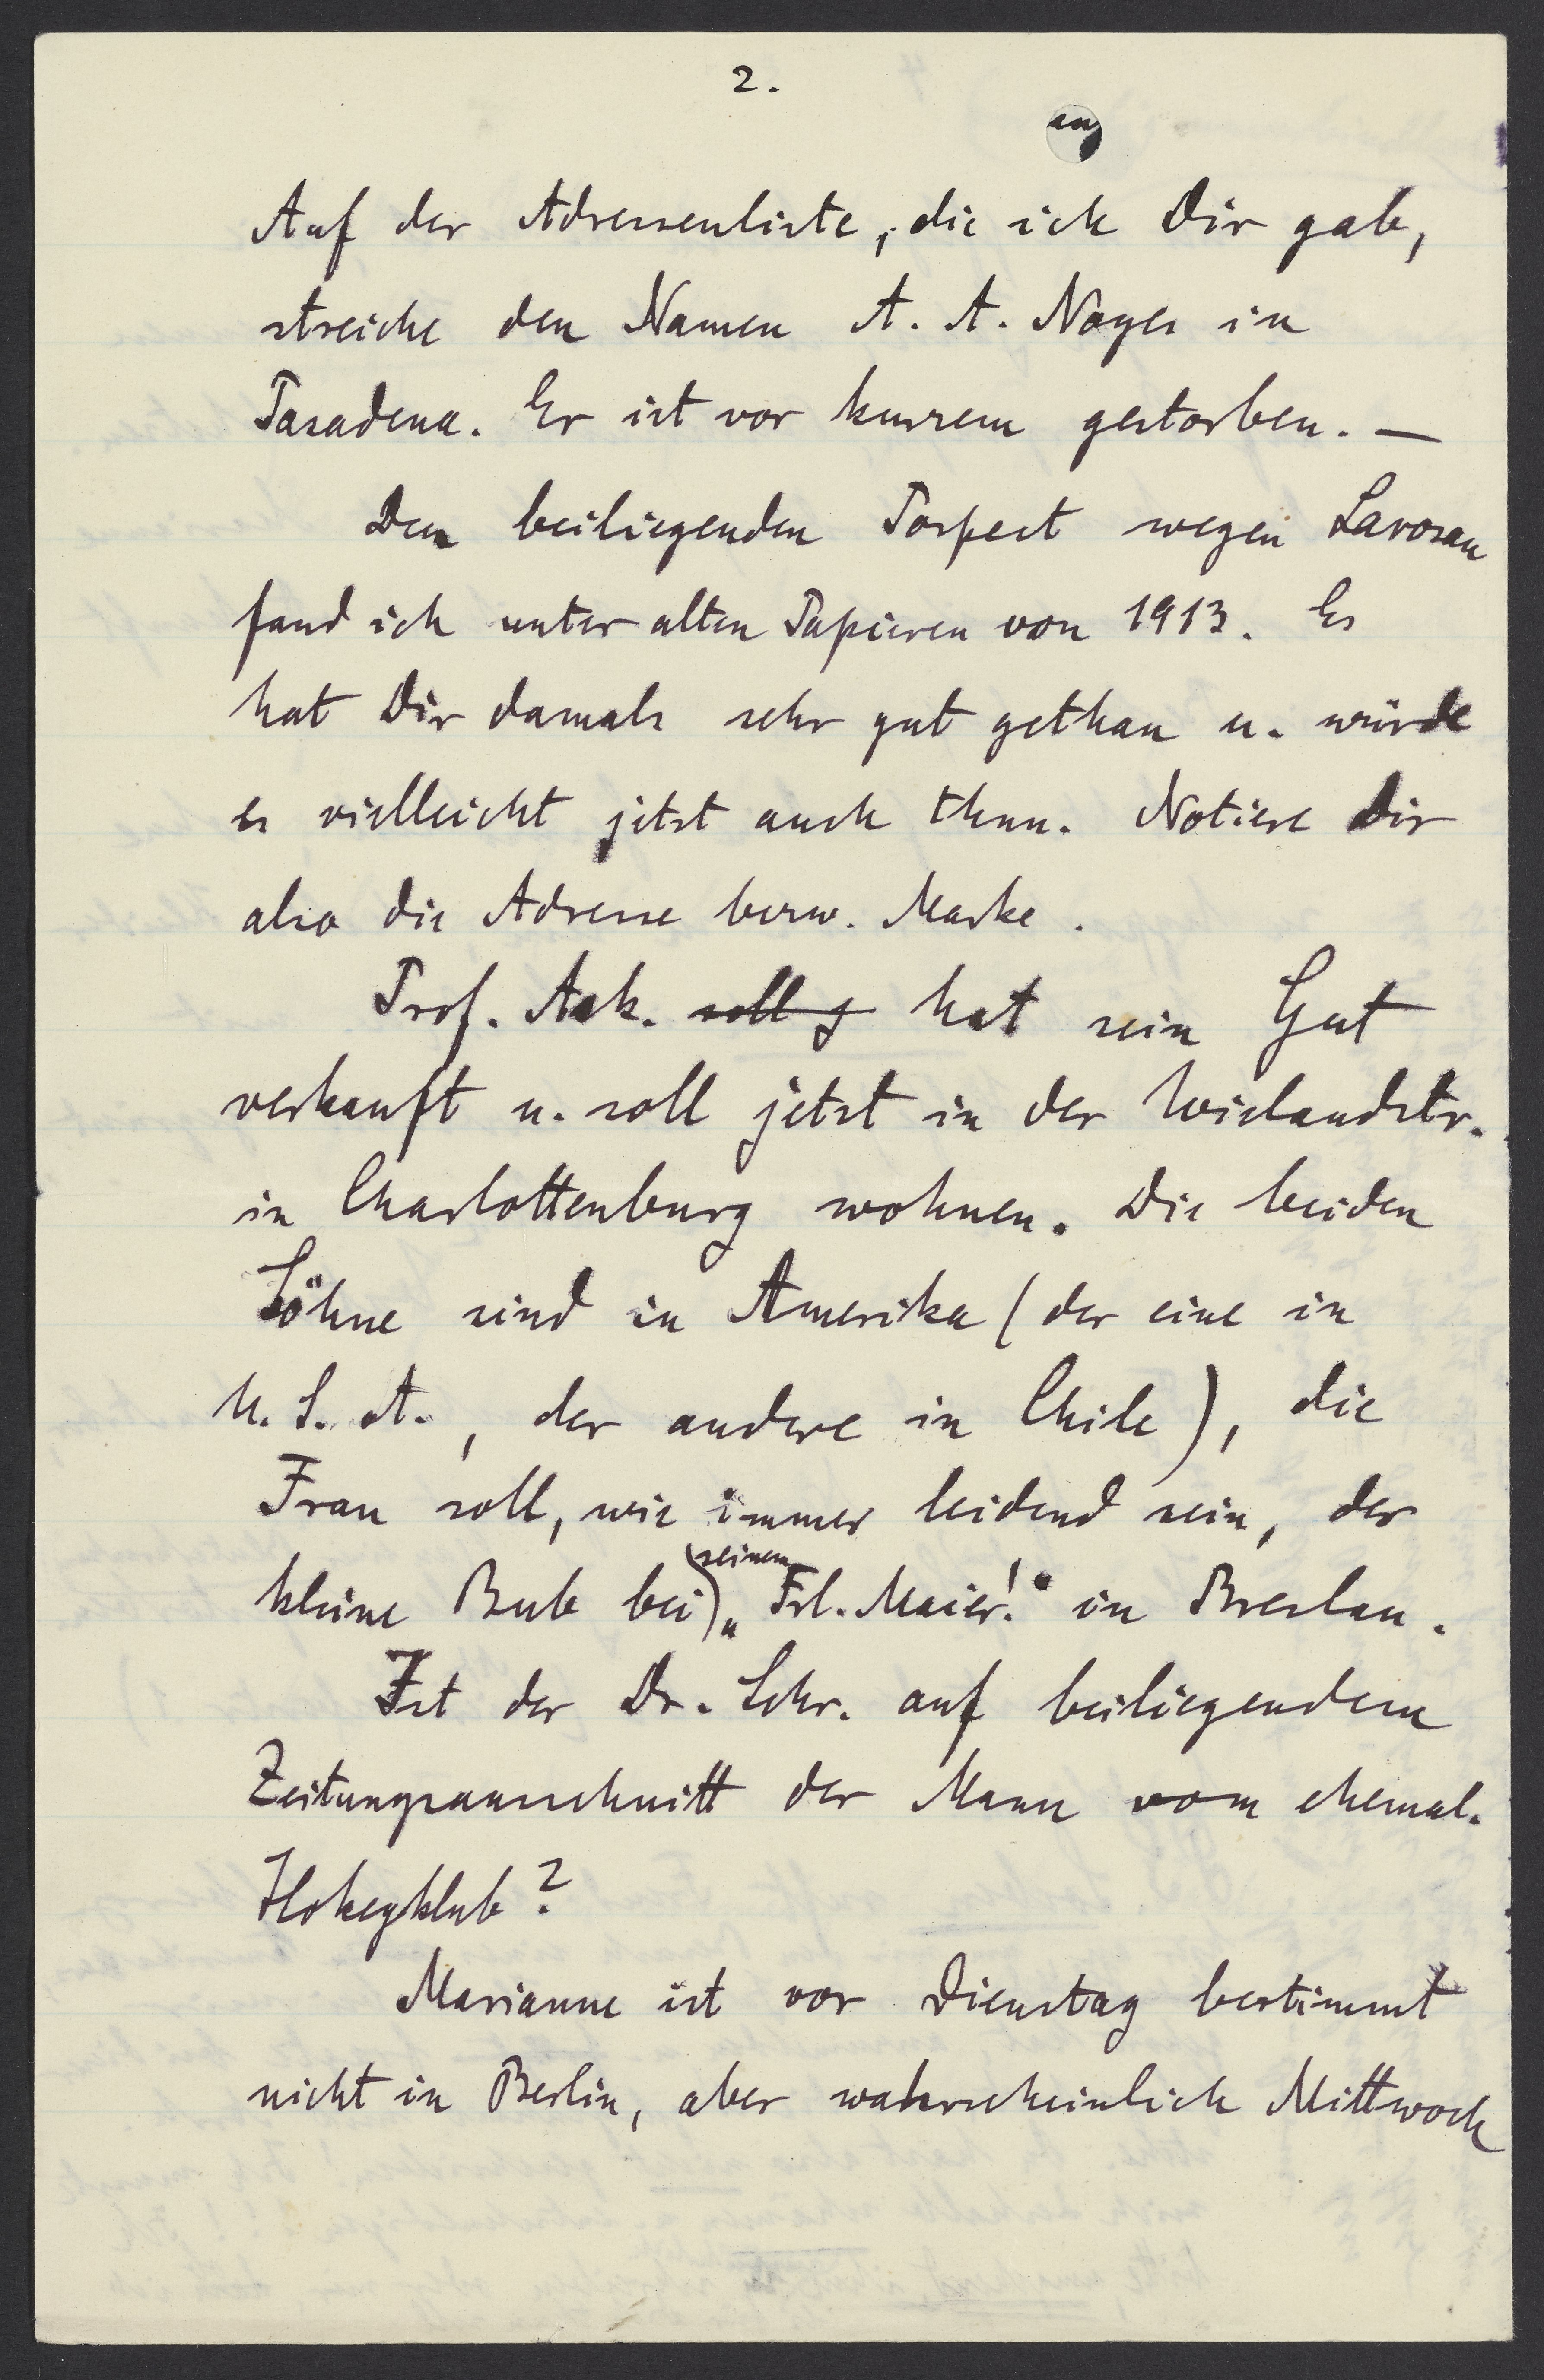 2.
Auf der Adressenliste, die ich Dir gab,
streiche den Namen A. A. Noyes in
Pasadena. Er ist vor kurzem gestorben. —
Den beiliegenden Pospect wegen Lavosan
fand ich unter alten Papieren von 1913. Es
hat Dir damals sehr gut gethan u. würde
es vielleicht jetzt auch thun. Notiere Dir
also die Adresse bezw. Marke.
Prof. Ask. soll g hat sein Gut
verkauft u. soll jetzt in der Wielandstr.
in Charlottenburg wohnen. Die beiden
Söhne sind in Amerika (der eine in
U. S. A., der andere in Chile), die
Frau soll, wie immer leidend sein, der
kleine Bub bei seinem „Frl. Maier!" in Breslau.
Ist der Dr. Schr. auf beiliegendem
Zeitungsausschnitt der Mann vom ehemal.
Hokeyklub?
Marianne ist vor Dienstag bestimmt
nicht in Berlin, aber wahrscheinlich Mittwoch